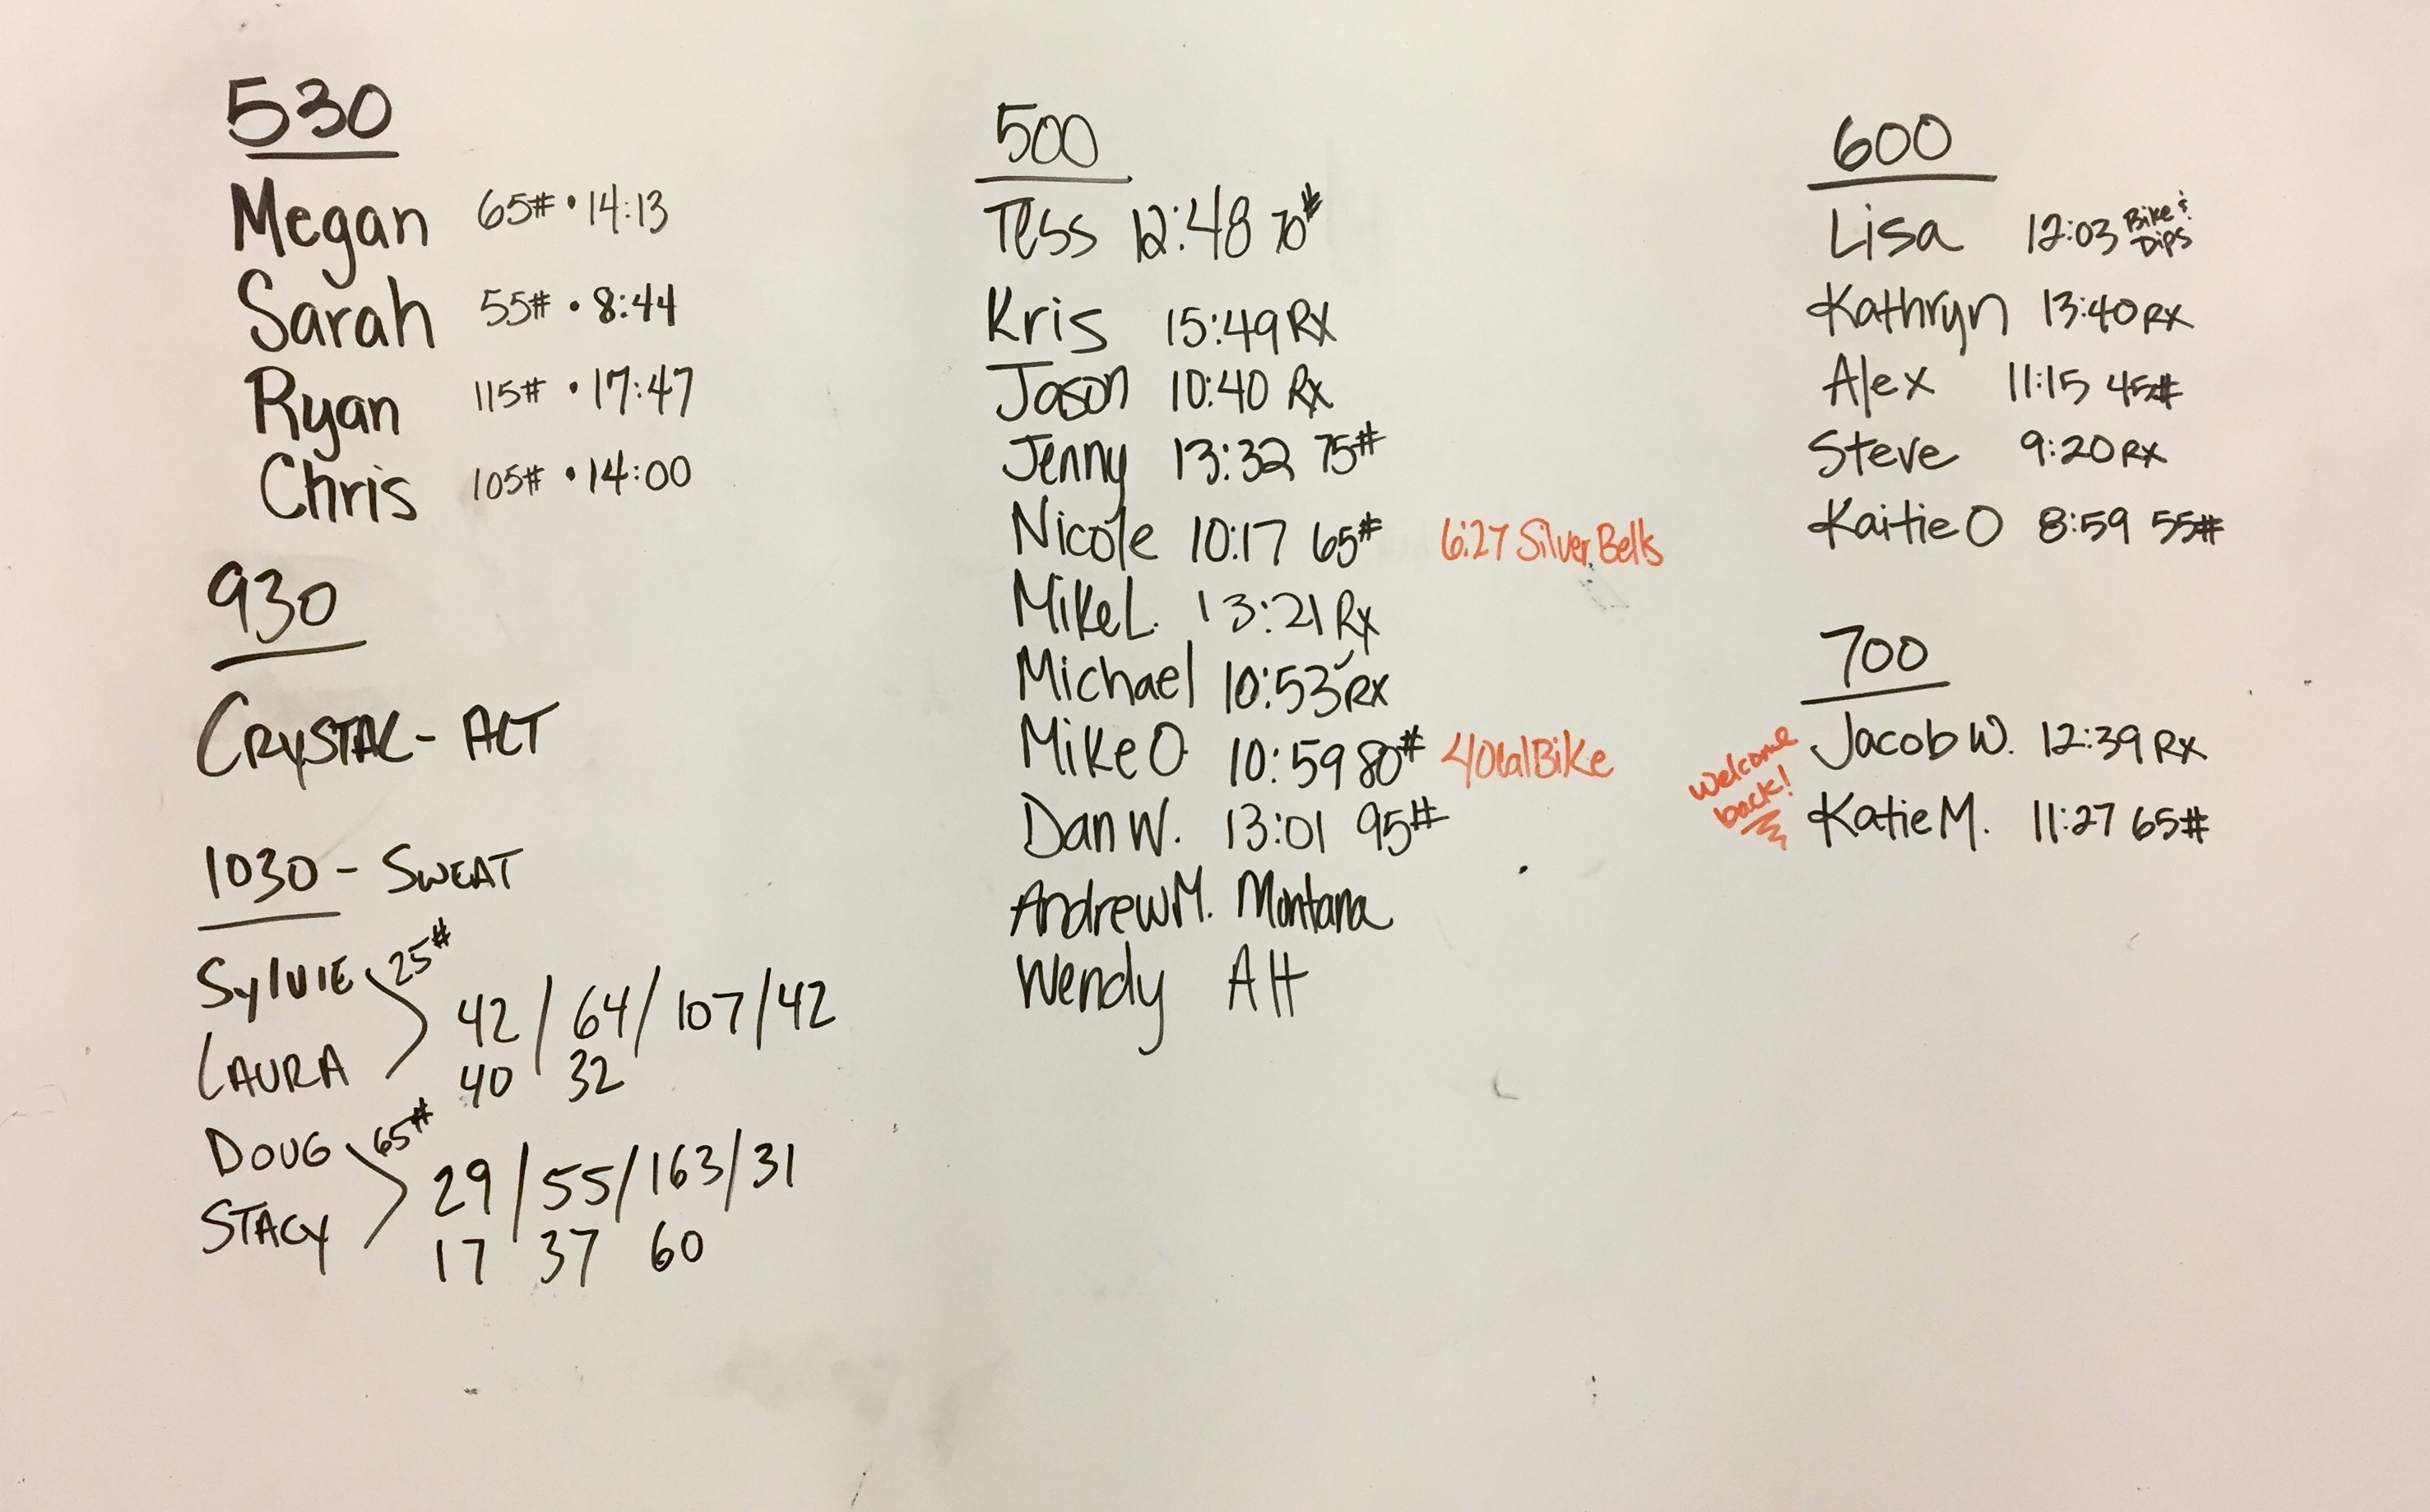 530
Megan 65# • 14:13
Sarah 55# • 8:44
Ryan 115# • 17:47
Chris 105# • 14:00
930
CRYSTAL - ALT
1030 - SWEAT
SYLVIE 25#
42 / 64 / 107 / 42
LAURA 40 32
DOUG 65#
29 / 55 / 163 / 31
STACY 17 37 60
500
Tess 12:48 70#
Kris 15:49 RX
Jason 10:40 Rx
Jenny 13:32 75#
Nicole 10:17 65# 6:27 Silver Bells
Mike L. 13:21 Rx
Michael 10:53 RX
Mike O 10:59 80# 40 Cal Bike
Dan W. 13:01 95#
Andrew M. Montana
Wendy Alt
600
Lisa 12:03 Bike &
Dips
Kathryn 13:40 RX
Alex 11:15 45#
Steve 9:20 RX
Kaitie O 8:59 55#
700
Jacob W. 12:39 RX
Welcome
back!
Katie M. 11:27 65#